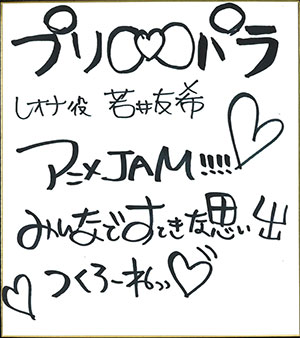 プリ♡パラ
レオナ役 若井友希
アニメJAM!!!!!
みんなですてきな思い出
つくろーねっっ♡